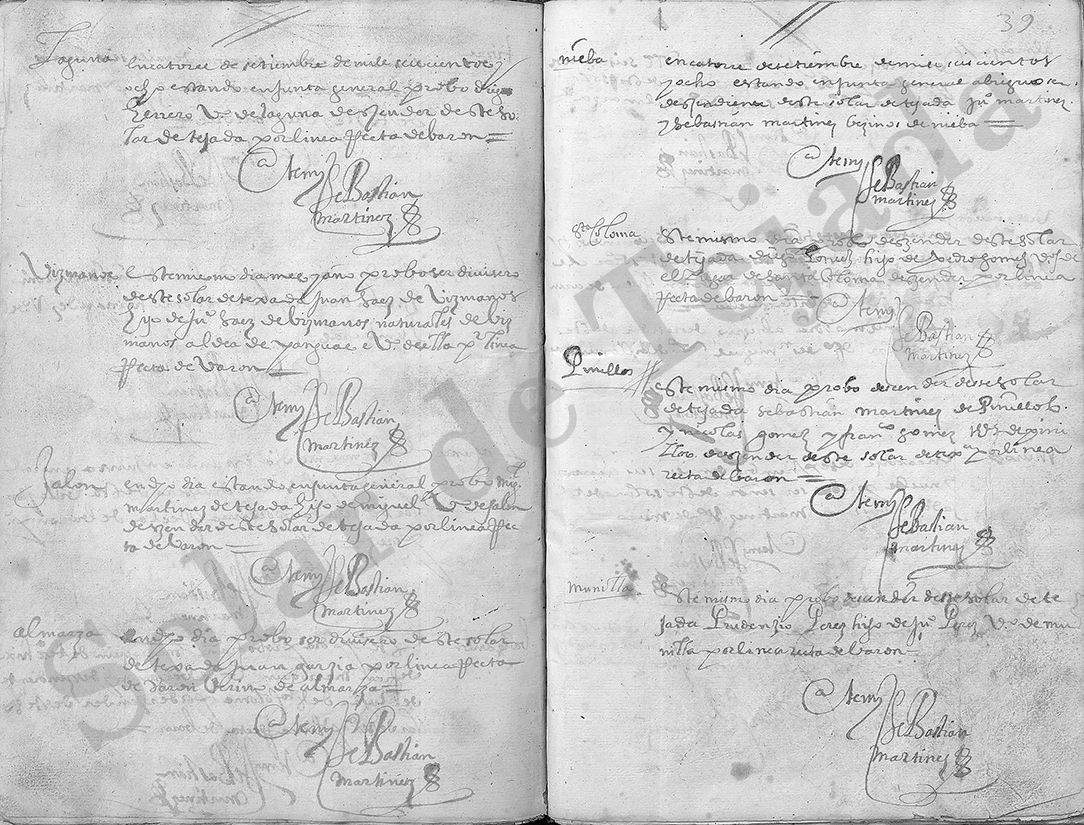 Laguna
En catorce de setiembre de mile seiscientos y
ocho estando en junta general probo diego
Herrero Vº de laguna desçender deste so
lar de tejada por linea Recta de baron
Ante my
SeBastian
Martinez
Vizmanos
Este mismo dia mes y año probo ser divisero
deste solar de texada Juan Saez de Vizmanos
hijo de juº Saez de vizmanos naturales de viz
manos aldea de yanguas e Vº de ella pr linia
Recta de Varon
Ante my
SeBastian
Martinez
Jalon
en dho dia estando en junta general probo
martinez de tejada hijo de miguel Vº de Jalon
deszender deste solar de tejada por linea Rec
ta de Varon
Ante my
SeBastian
Martinez
almarza
en dho dia probo ser divisero deste solar
de texada juan garzia por linea Recta
de Varon vecino de almarza
Ante my
SeBastian
Martinez
39
nieba
en catorze de setiembre de mil seiscientos
y ocho estando en junta general
desçendientes deste solar de tejada juº martinez
y Sebastian martinez bezinos de nieba
Ante my
SeBastian
martinez
Sta Coloma
Este mismo dia probo deszender deste solar
de tejada hijo de Pedro gomez
el de santa Coloma deszender por linea
Recta de baron
Ante my
SeBastian
Martinez
Pinillos
Este mismo dia probo decender deste solar
de tejada sebastian martinez de Pinillos
y nicolas gomez y franco gomez de pini
llos deszender deste solar de texª por linea
recta de baron
Ante my
SeBastian
martinez
munilla
Este mismo dia probo decender deste solar de te
jada Prudenzio Perez hijo de juº Perez Vº de mu
nilla por linea recta de baron
Ante my
SeBastian
Martinez
Solar de Tejada